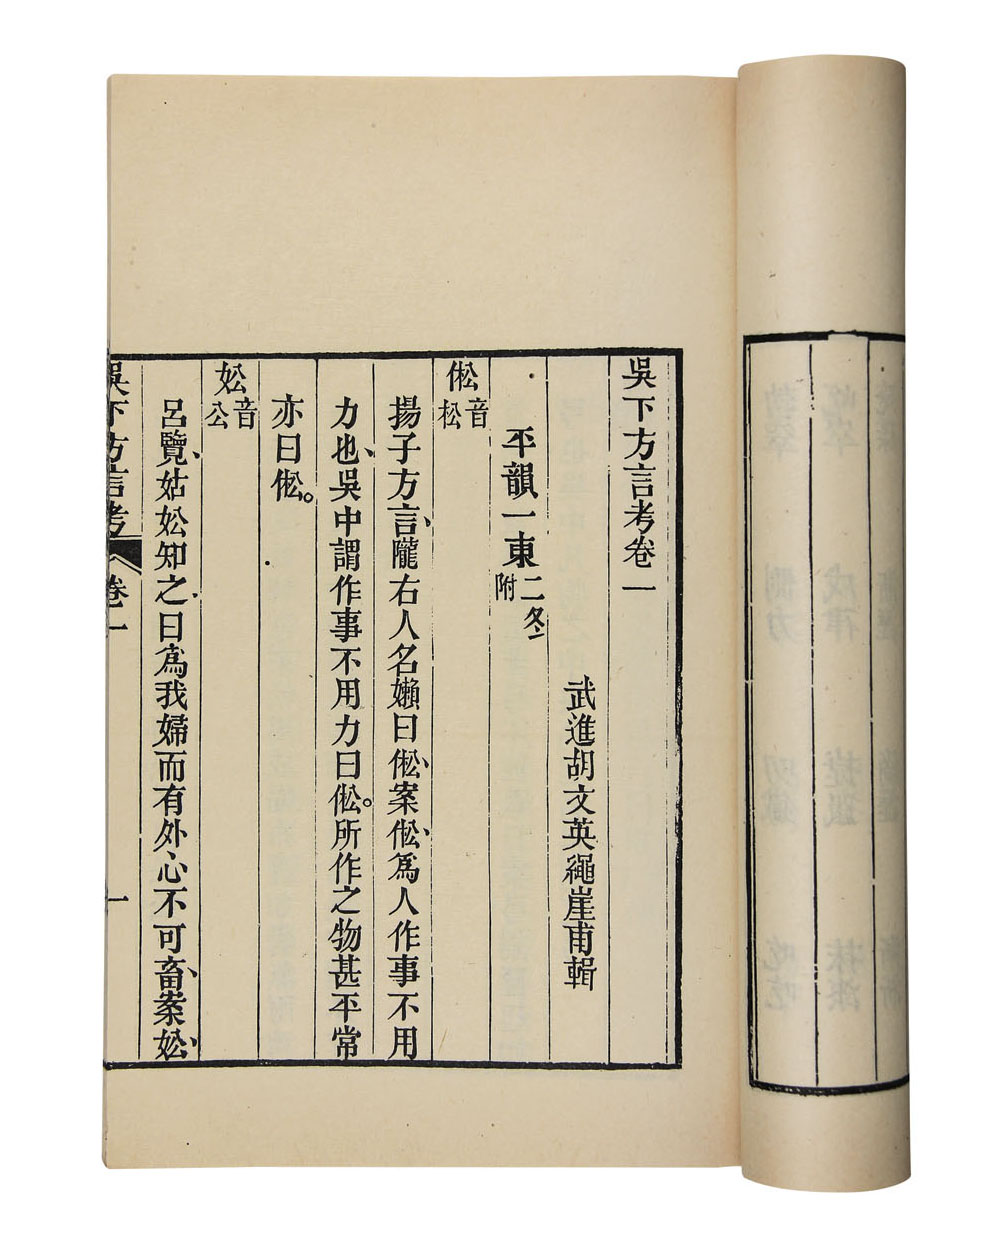 吳下方言考卷一
武進胡文英繩崖甫輯
平韻一東二冬附
倯音松
揚子方言、隴右人名嬾曰倯、案倯、爲人作事不用
力也、吳中謂作事不用力曰倯。所作之物甚平常
亦曰倯。
妐音公
呂覽、姑妐知之、曰爲我婦而有外心不可畜、案妐、
吳下方言考 卷一 一